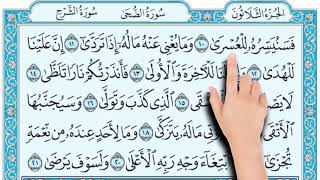 الجُزْءُ الثَّلَاثُونَ سُورَةُ الضُّحَى سُورَةُ الشَّرْحِ
فَسَنُيَسِّرُهُۥ لِلْعُسْرَىٰ ١٠ وَمَا يُغْنِى عَنْهُ مَالُهُۥٓ إِذَا تَرَدَّىٰٓ ١١ إِنَّ عَلَيْنَا
لَلْهُدَىٰ ١٢ لَلْـَٔاخِرَةَ وَٱلْأُولَىٰ ١٣ فَأَنذَرْتُكُمْ نَارًا تَلَظَّىٰ ١٤
ٱلَّذِى كَذَّبَ وَتَوَلَّىٰ ١٦ وَسَيُجَنَّبُهَا
ٱلْأَتْقَى مَالَهُۥ يَتَزَكَّىٰ ١٨ وَمَا لِأَحَدٍ عِندَهُۥ مِن نِّعْمَةٍ
تُجْزَىٰٓ ٱبْتِغَآءَ وَجْهِ رَبِّهِ ٱلْأَعْلَىٰ ٢٠ وَلَسَوْفَ يَرْضَىٰ ٢١